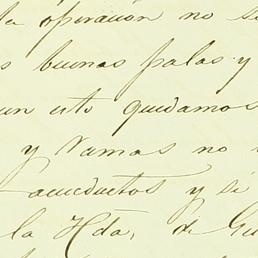 la operacion no se
buenas palas y
un esto quedamos
y vamos no
acueductos y si
la Hda, de